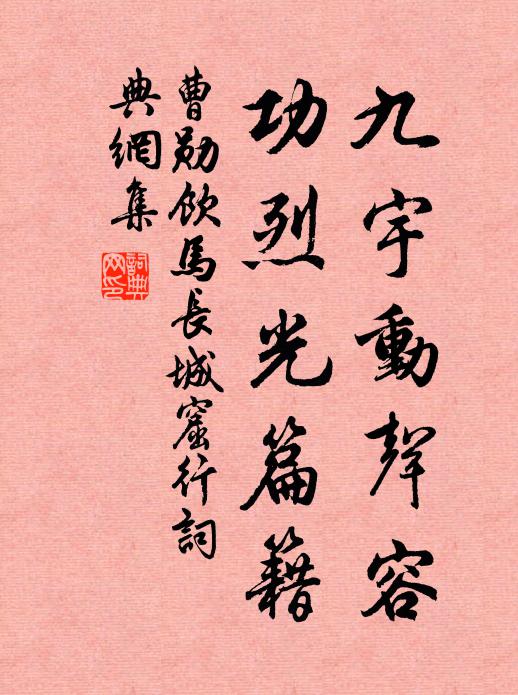 九宇動聲容
功烈光篇籍
曹勛飲馬長城窟行詞
典網集
詞典網印